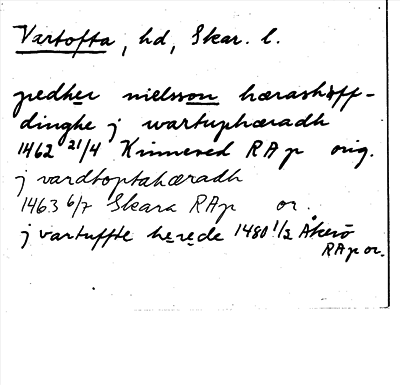 Vartofta, hd, Skar. l.
pedher nielsson hærashöff-
dinghe j wartuphæradh
1462 21/4 Kinneved RAp orig.
j vardtoptahæradh
1463 6/7 Skara RAp or.
j vartuffte herede 1480 1/2 Åkerö
RAp or.